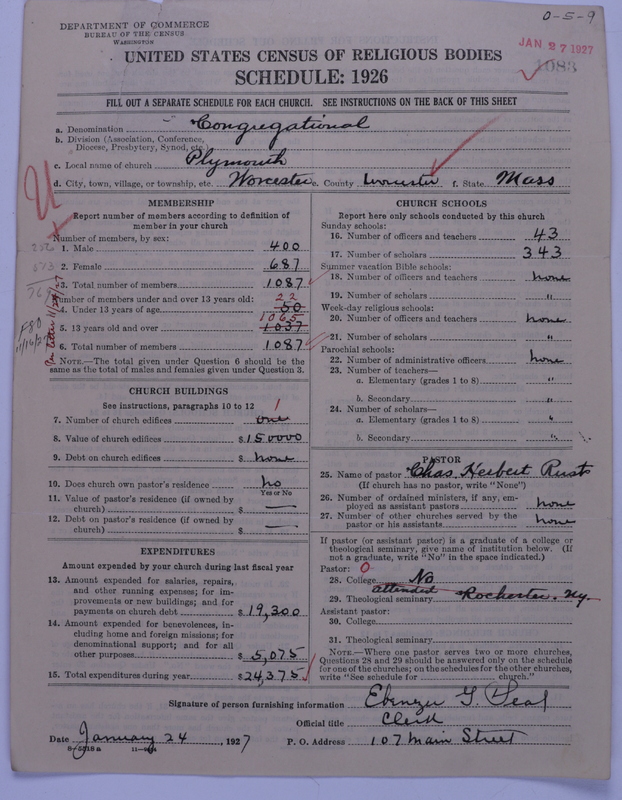 DEPARTMENT OF COMMERCE
BUREAU OF THE CENSUS
WASHINGTON
0-5-9
JAN 27 1927
1083
UNITED STATES CENSUS OF RELIGIOUS BODIES
SCHEDULE: 1926
FILL OUT A SEPARATE SCHEDULE FOR EACH CHURCH. SEE INSTRUCTIONS ON THE BACK OF THIS SHEET
a. Denomination Congregational
b. Division (Association, Conference, Diocese, Presbytery, Synod, etc.)
c. Local name of church Plymouth
d. City, town, village, or township, etc. Worcester e. County Worcester f. State Mass
MEMBERSHIP
Report number of members according to definition of member in your church
Number of members, by sex:
1. Male 400
2. Female 687
3. Total number of members 1087
Number of members under and over 13 years old:
22
4. Under 13 years of age 50
1065
5. 13 years old and over 1037
6. Total number of members 1087
NOTE.—The total given under Question 6 should be the same as the total of males and females given under Question 3.
CHURCH BUILDINGS
See instructions, paragraphs 10 to 12
1
7. Number of church edifices one
8. Value of church edifices $150000
9. Debt on church edifices $none
10. Does church own pastor's residence no
Yes or No
11. Value of pastor's residence (if owned by church) $ —
12. Debt on pastor's residence (if owned by church) $ —
EXPENDITURES
Amount expended by your church during last fiscal year
13. Amount expended for salaries, repairs, and other running expenses; for improvements or new buildings; and for payments on church debt $19,300
14. Amount expended for benevolences, including home and foreign missions; for denominational support; and for all other purposes $5,075
15. Total expenditures during year $24,375
CHURCH SCHOOLS
Report here only schools conducted by this church
Sunday schools:
16. Number of officers and teachers 43
17. Number of scholars 343
Summer vacation Bible schools:
18. Number of officers and teachers none
19. Number of scholars "
Week-day religious schools:
20. Number of officers and teachers none
21. Number of scholars "
Parochial schools:
22. Number of administrative officers none
23. Number of teachers—
a. Elementary (grades 1 to 8) "
b. Secondary "
24. Number of scholars—
a. Elementary (grades 1 to 8) "
b. Secondary "
PASTOR
25. Name of pastor Chas. Herbert Rust
(If church has no pastor, write "None")
26. Number of ordained ministers, if any, employed as assistant pastors none
27. Number of other churches served by the pastor or his assistants none
If pastor (or assistant pastor) is a graduate of a college or theological seminary, give name of institution below. (If not a graduate, write "No" in the space indicated.)
Pastor: 0
28. College No
attended
29. Theological seminary Rochester. Ny
Assistant pastor:
30. College
31. Theological seminary
NOTE.—Where one pastor serves two or more churches, Questions 28 and 29 should be answered only on the schedule for one of the churches; on the schedules for the other churches, write "See schedule for church."
Signature of person furnishing information Ebenezer G. Seal
Official title Clerk
Date January 24, 1927 P. O. Address 107 Main Street